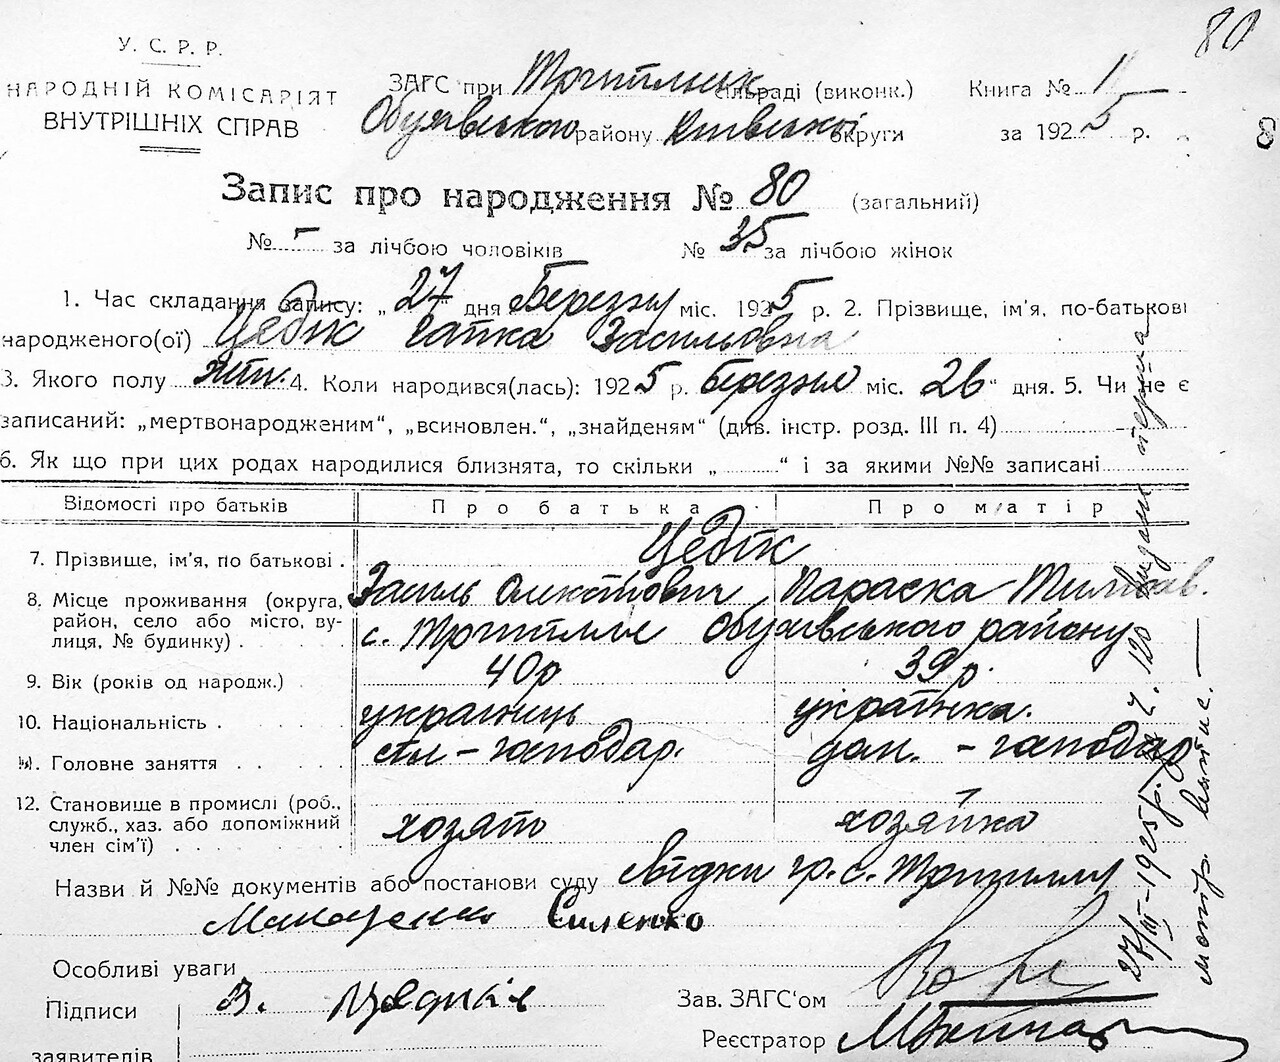 80
У. С. Р. Р.
НАРОДНІЙ КОМІСАРІЯТ
ВНУТРІШНІХ СПРАВ
ЗАГС при сільраді (виконк.)
Обухівського району Київської округи
Книга № 1
за 1925 р.
8
Запис про народження № 80 (загальний)
№ – за лічбою чоловіків № 35 за лічбою жінок
1. Час складання запису: „27" дня Березня міс. 1925 р. 2. Прізвище, ім'я, по-батькові
народженого(ої) Цедік Гапка Василівна
3. Якого полу жін. 4. Коли народився(лась): 1925 р. березня міс. 26" дня. 5. Чи не є
записаний: „мертвонародженим", „всиновлен.", „знайденям" (див. інстр. розд. III п. 4) –
6. Як що при цих родах народилися близнята, то скільки „ " і за якими №№ записані
Відомості про батьків Про батька Про матір
7. Прізвище, ім'я, по батькові . Цедік
Василь Параска
8. Місце проживання (округа, район, село або місто, вулиця, № будинку) . с. Трипілля Обухівського району
9. Вік (років од народж.) . 40р 39р.
10. Національність . українець українка.
11. Головне заняття . . . . . сіл – господар. дом. – господар
12. Становище в промислі (роб., служб., хаз. або допоміжний член сім'ї) . . . . . хозяїн хозяйка
Назви й №№ документів або постанови суду свідки гр. с. Трипілля
Силенко
Особливі уваги
Підписи
заявителів
В. Цедік
Зав. ЗАГС'ом
Реєстратор
27/III–1925р.